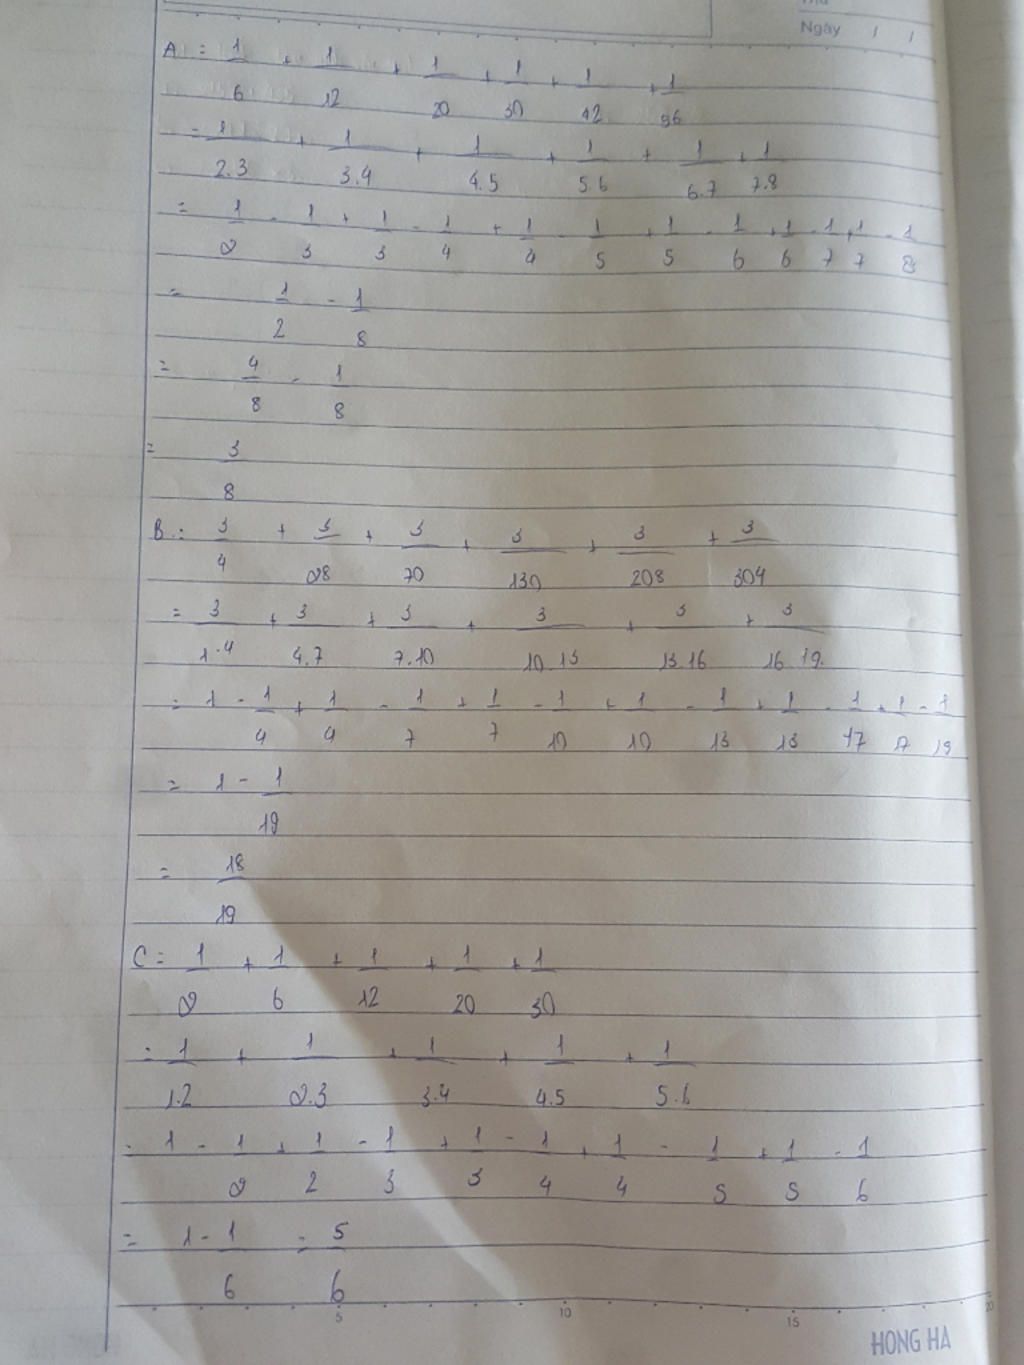 Thứ
Ngày / /
A = 1/6 + 1/12 + 1/20 + 1/30 + 1/42 + 1/56
= 1/2.3 + 1/3.4 + 1/4.5 + 1/5.6 + 1/6.7 + 1/7.8
= 1/2 - 1/3 + 1/3 - 1/4 + 1/4 - 1/5 + 1/5 - 1/6 + 1/6 - 1/7 + 1/7 - 1/8
= 1/2 - 1/8
= 4/8 - 1/8
= 3/8
B = 3/4 + 3/28 + 3/70 + 3/130 + 3/208 + 3/304
= 3/1.4 + 3/4.7 + 3/7.10 + 3/10.13 + 3/13.16 + 3/16.19
= 1 - 1/4 + 1/4 - 1/7 + 1/7 - 1/10 + 1/10 - 1/13 + 1/13 - 1/17 + 1/17 - 1/19
= 1 - 1/19
= 18/19
C = 1/2 + 1/6 + 1/12 + 1/20 + 1/30
= 1/1.2 + 1/2.3 + 1/3.4 + 1/4.5 + 1/5.6
= 1 - 1/2 + 1/2 - 1/3 + 1/3 - 1/4 + 1/4 - 1/5 + 1/5 - 1/6
= 1 - 1/6 = 5/6
5 10 15 20
HONG HA